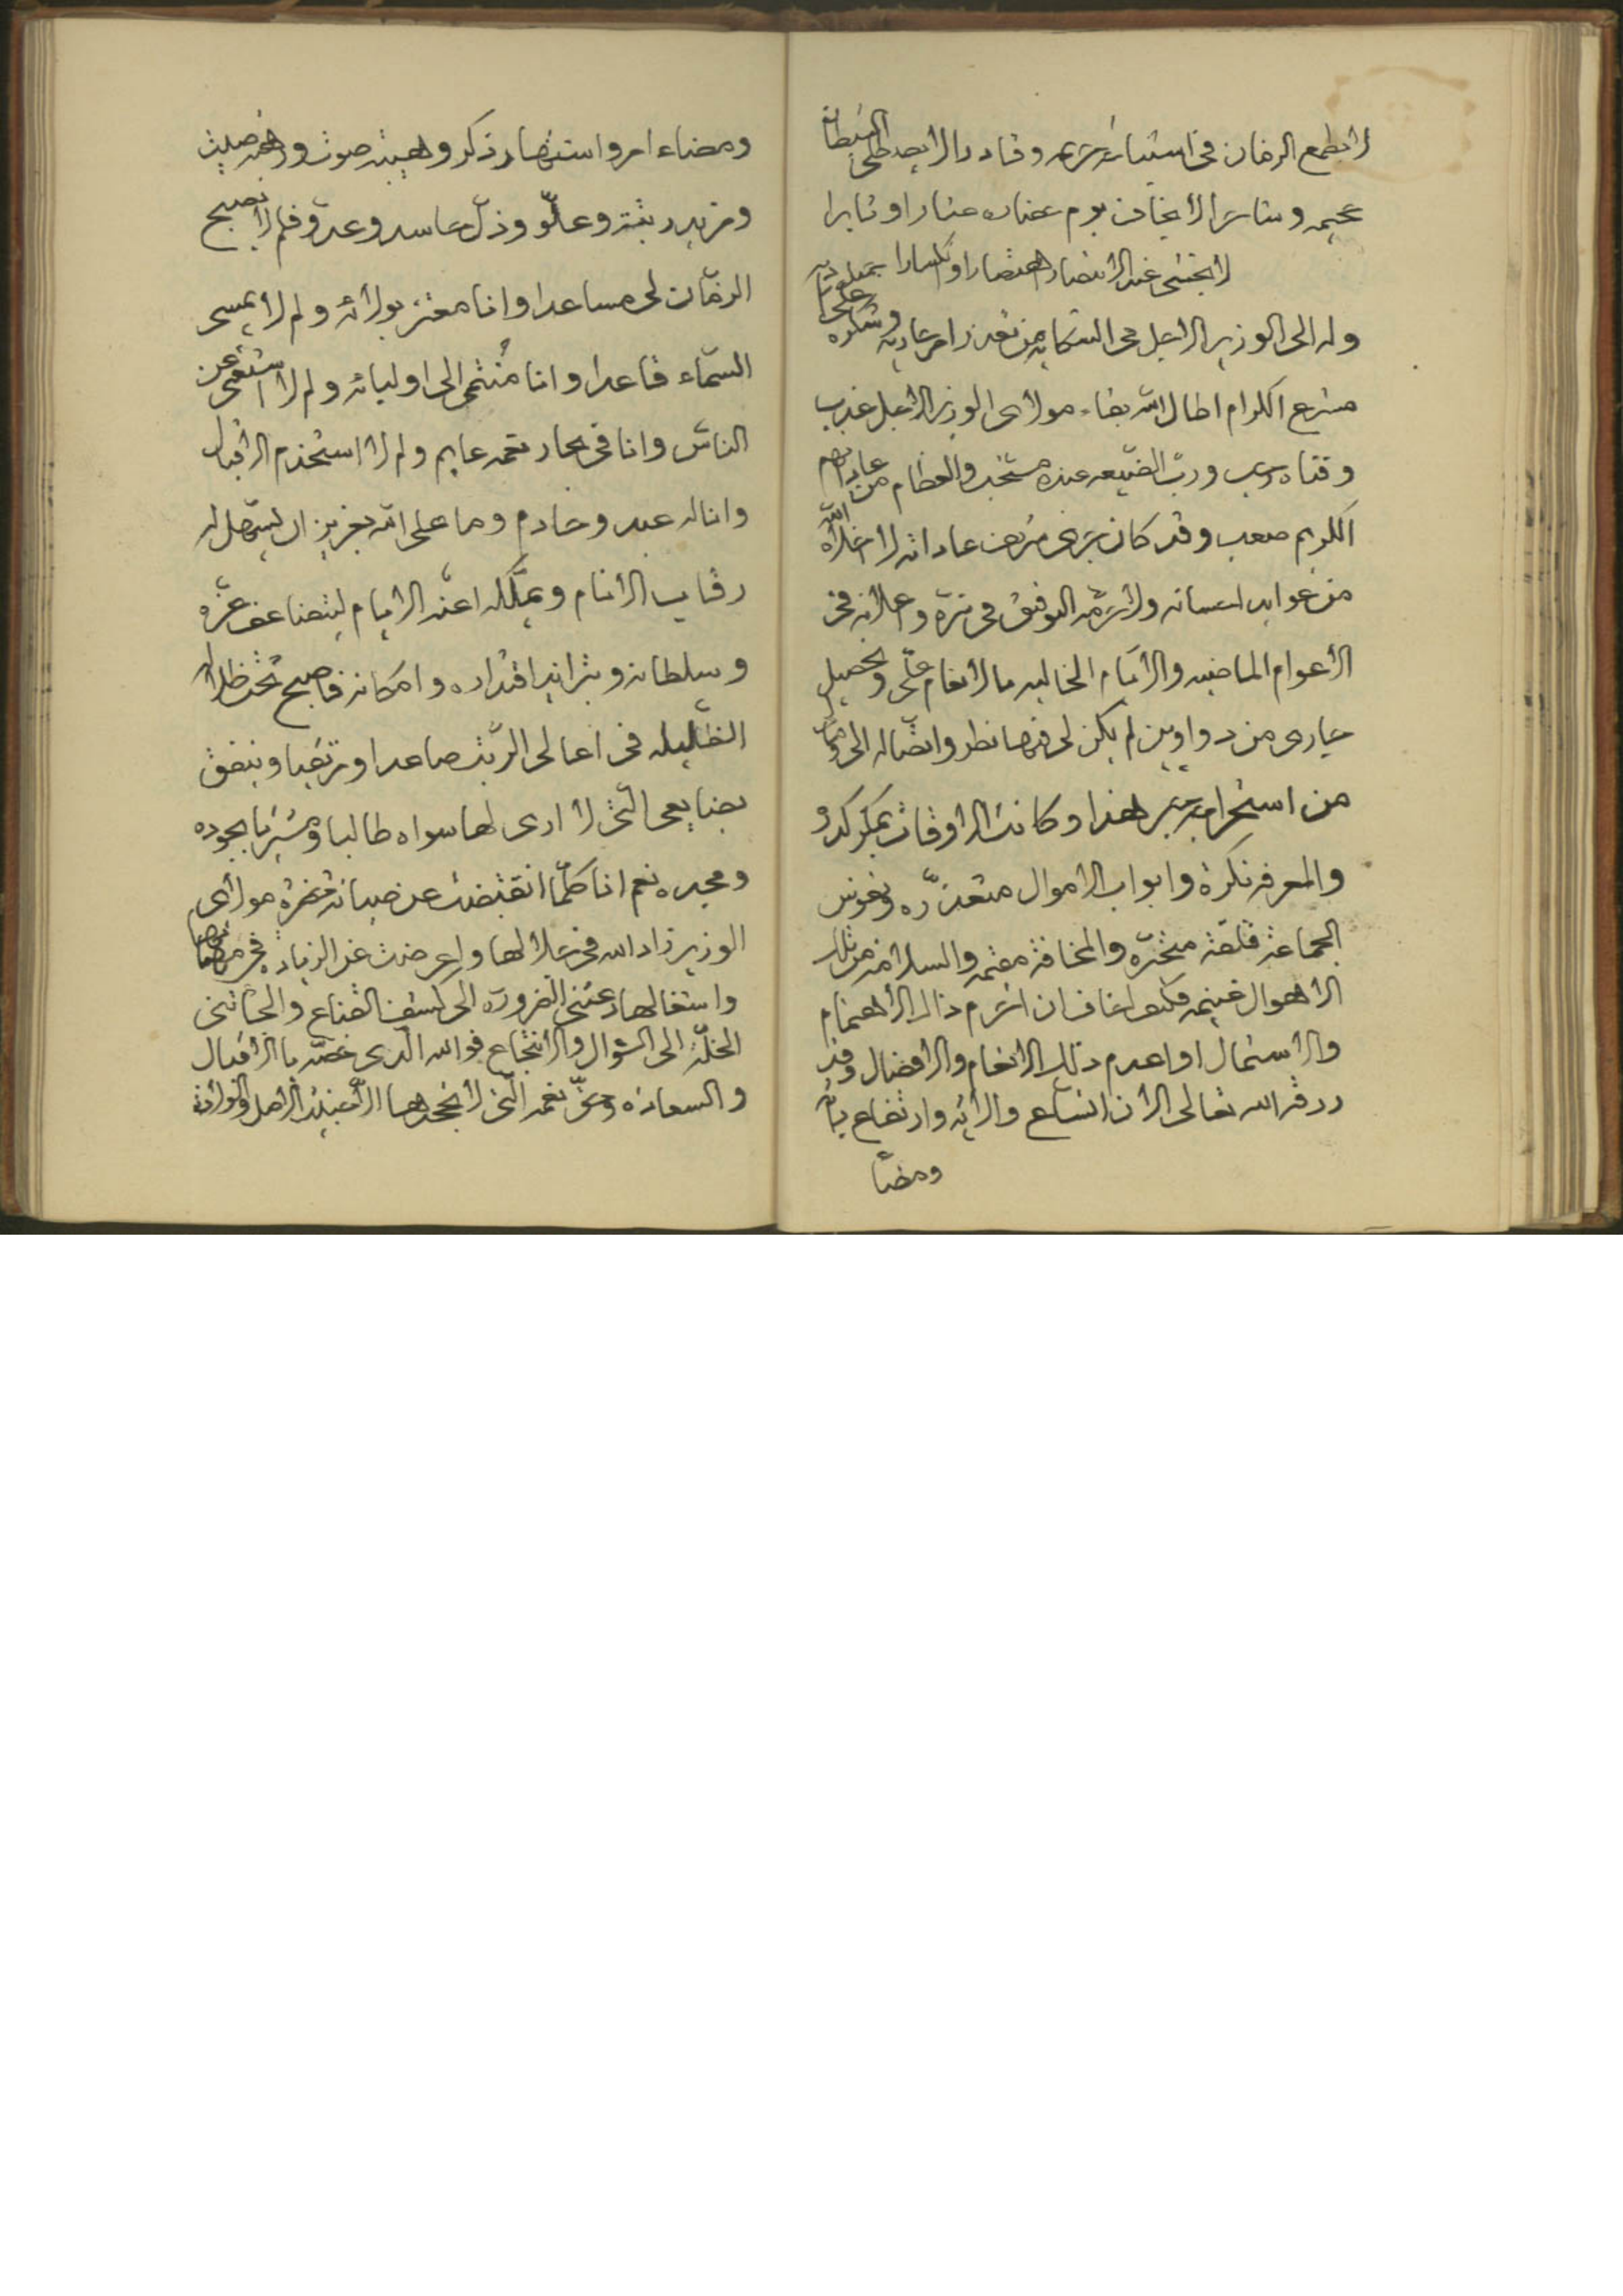 لا يطمع الزمان في استباء شربه وقادرا لا يصطلى السطا
عجمه وسائرا لا يخاف يوم عناده عثارا او ثابرا
لا يخشى عند الانتصار اهتصارا وانكسارا
وله الى الوزير الاجل في الشكاية من تعذر امر عاريه وشكره على
مشرع الكرام اطال الله بقاء مولاى الوزير الاجل عذب
وفتاه رحيب ورب الضيعه عنده مستحب والفطام من عاداتهم
الكريم صعب وقد كان يرى من عاداته لا اخلاه الله
من عوايد احسانه ولازمه التوفيق في سره وعلانه في
الاعوام الماضيه والايام الخاليه بالانعام علي وتحصيل
جارى من دواوين لم يكن لي فيها نظر واتصاله الى
من استخرا به هذا وكانت الاوقات بمكر كدره
والمعرفه نكرة وابواب الاموال متعذره ونفوس
الجماعة قلقة متحيره والمخافة مغتمه والسلامه من تلك
الاهوال غنيمه فكيف اخاف ان احرم ذلك الاهتمام
والاشتمال او اعدم ذلك الانعام والافضال وقد
رزقه الله تعالى الان اتساع ولاية وارتفاع
ومضا
ومضاء امر واشتهار ذكر وهيبة صوت
ومزيد رتبة وعلو وذل حاسد وعدو فلم لا يصبح
الزمان لي مساعدا وانا معتز بولائه ولم لا يمسى
السماء قاعدا وانا منتمى الى اوليائه ولم لا استغنى عن
الناس وانا في بحار نعمه عايم ولم لا استخدم الاقبال
وانا له عبد وخادم وما على الله بعزيز ان يسهل له
رقاب الانام ويملكه اعنة الايام ليتضاعف عزه
وسلطانه ويتزايد اقتداره وامكانه فاصبح تحت ظلاله
الظليله في اعالى الرتب صاعدا ومرتقيا وينفق
بضايعى التى لا ارى لها سواه طالبا ومشتريا بجوده
ومجده نعم انا كلما انقبضت عن صيانة حضرة مولاى
الوزير زاد الله في جلالها واعرضت عن الزيادة في مهماتها
واشتغالها دعتنى الضرورة الى كشف القناع والجأتنى
الخلة الى السؤال والانتجاع فو الله الذى خصه بالاقبال
والسعاده وحق نعمه التى لا يجحدها الا خبيث الاصل والولادة